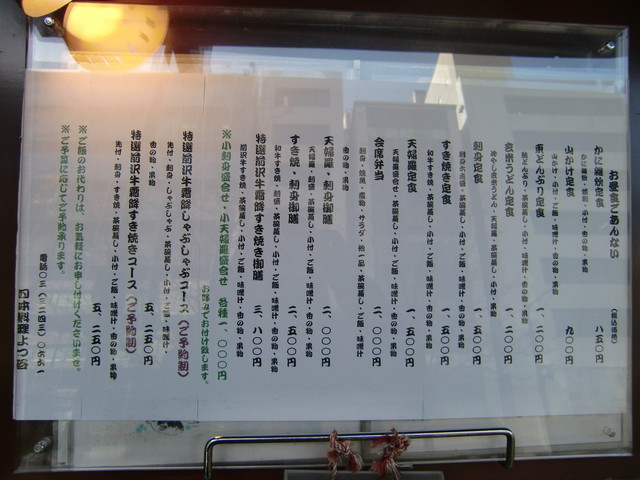 お昼食ごあんない
(税込価格)
かに雑炊定食 八五〇円
山かけ定食 九〇〇円
山かけ・小付・ご飯・味噌汁・香の物・果物
重どんぶり定食 一、二〇〇円
玄米うどん定食 一、二〇〇円
冷やし玄米うどん・天婦羅・茶碗蒸し・小付・ご飯・香の物・果物
刺身定食 一、五〇〇円
すき焼き定食 一、五〇〇円
和牛すき焼・茶碗蒸し・小付・ご飯・味噌汁・香の物・果物
天婦羅定食 一、五〇〇円
天婦羅・茶碗蒸し・小付・ご飯・味噌汁・香の物・果物
会席弁当 二、〇〇〇円
香の物・果物
天婦羅・刺身御膳 二、〇〇〇円
天婦羅・刺盛・茶碗蒸し・小付・ご飯・味噌汁・香の物・果物
すき焼・刺身御膳 二、五〇〇円
和牛すき焼・刺盛・茶碗蒸し・小付・ご飯・味噌汁・香の物・果物
特選前沢牛霜降すき焼き御膳 三、八〇〇円
前沢牛すき焼・刺盛・茶碗蒸し・小付・ご飯・味噌汁・香の物・果物
※小刺身盛合せ・小天婦羅盛合せ 各種一、〇〇〇円
お好みでお付け致します。
特選前沢牛霜降しゃぶしゃぶコース(ご予約制) 五、二五〇円
先付・刺身・しゃぶしゃぶ・茶碗蒸し・小付・ご飯・味噌汁・
香の物・果物
特選前沢牛霜降すき焼きコース(ご予約制) 五、二五〇円
先付・刺身・すき焼・茶碗蒸し・小付・ご飯・味噌汁・香の物・果物
※ご飯のお代わりは、お気軽にお申し付けくださいませ。
※ご予算に応じてご予約承ります。
電話〇三(三二四三)〇六六一
日本料理よつ谷